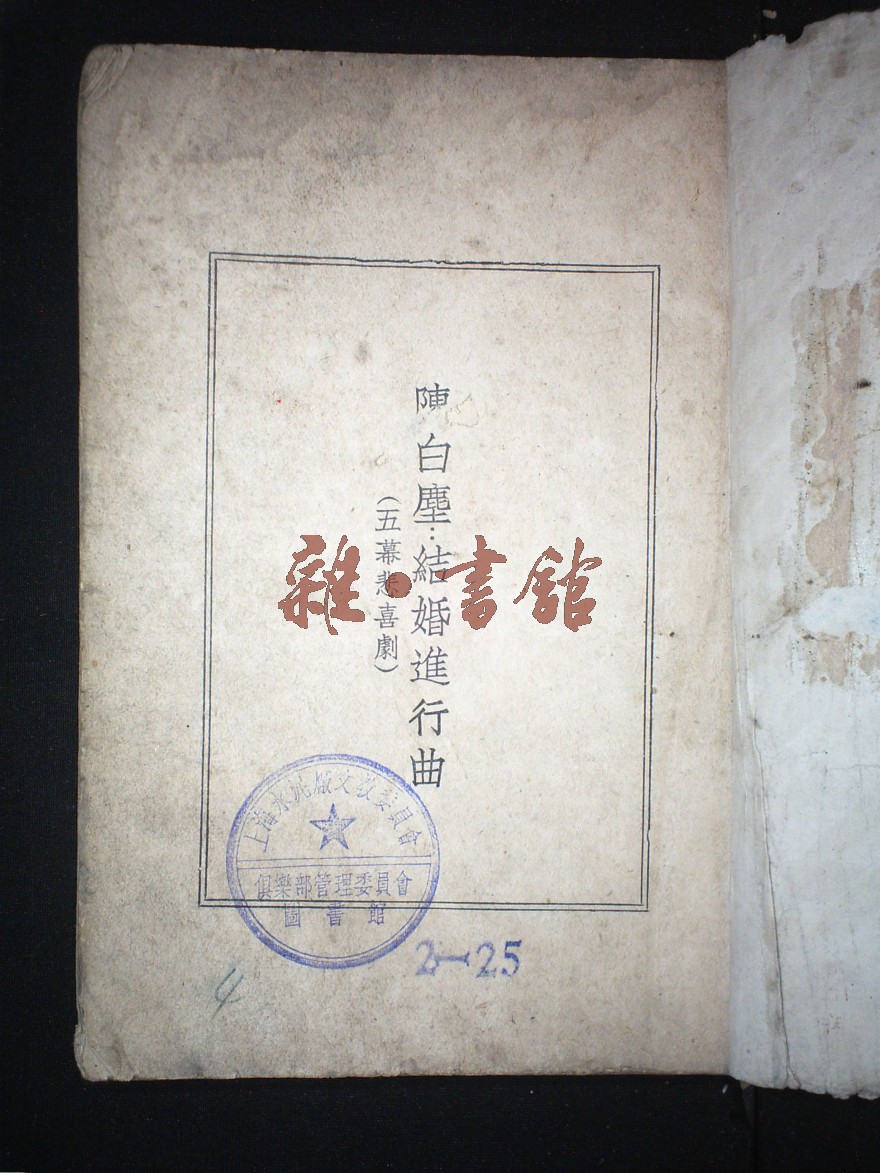 陳白塵：結婚進行曲
（五幕悲喜劇）
雜·書館
上海水泥廠文教委員會
俱樂部管理委員會
圖書館
2—25
4